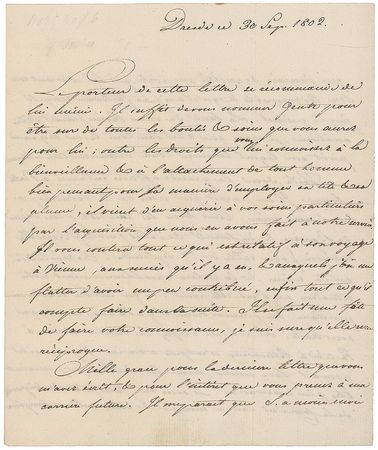 Dresde ce 30 Sep. 1802.
Le porteur de cette lettre se recommande de
lui même. Il suffit de vous nommer Gentz pour
être sur de toutes les bontés & soins que vous aurez
pour lui; outre les droits que vous lui connoissez à la
bienveillance & à l'attachement de tout homme
bien pensant pour sa manière d'employer sa tête & sa
plume, il vient d'en acquérir à vos soins particuliers
par l'acquisition que nous en avons fait à notre service
Il vous contera tout ce qui est relatif à son voyage
à Vienne, aux succès qu'il y a eu, & auxquels j'ose me
flatter d'avoir un peu contribué, enfin tout ce qu'il
compte faire dans la suite. Il se fait une fête
de faire votre connoissance, je suis sur qu'elle sera
réciproque.
Mille graces pour la dernière lettre que vous
m'avez écrit, & pour l'intérêt que vous prenez à ma
carrière future. Il me paroit que S. a moins